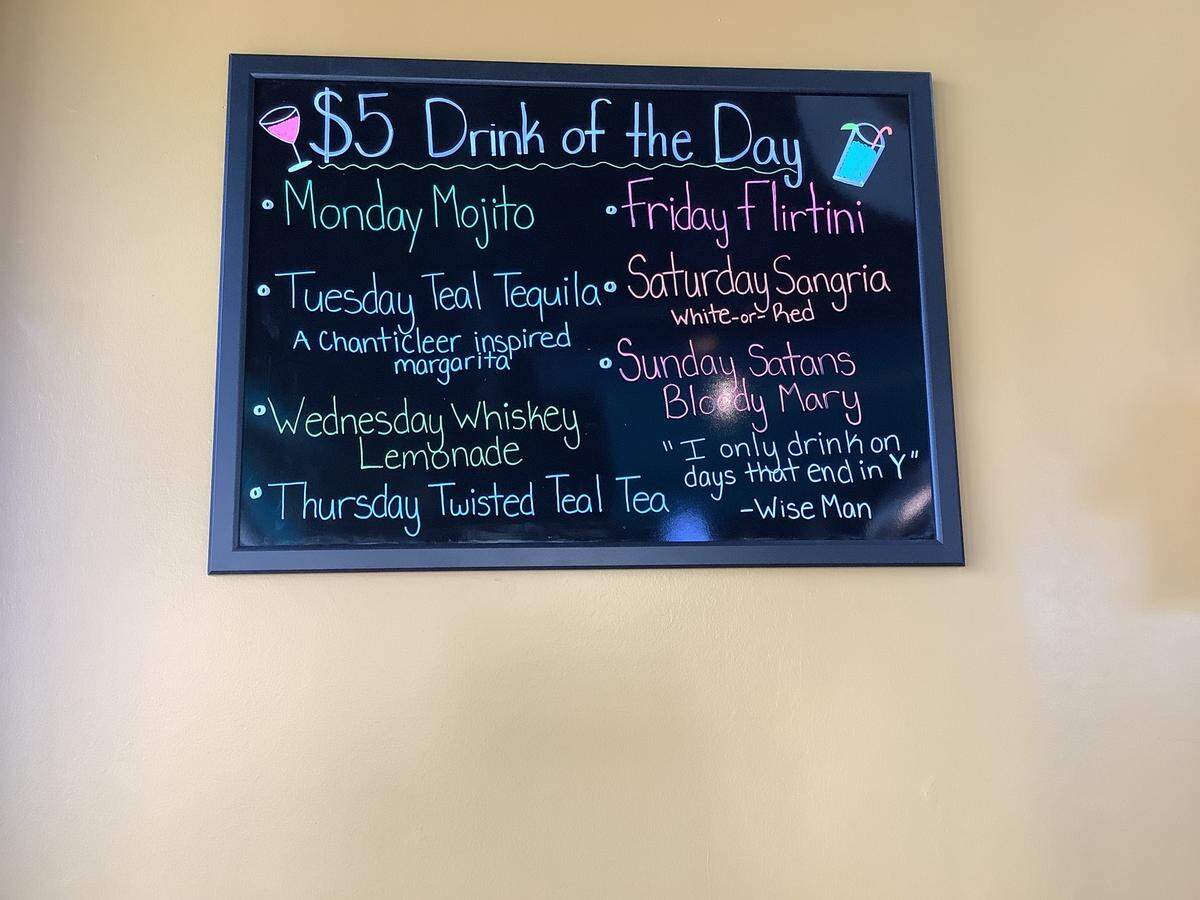 $5 Drink of the Day
Monday Mojito
Tuesday Teal Tequila
A Chanticleer inspired
margarita
Wednesday Whiskey
Lemonade
Thursday Twisted Teal Tea
Friday Flirtini
Saturday Sangria
White-or-Red
Sunday Satans
Bloody Mary
"I only drink on
days that end in Y"
-Wise Man